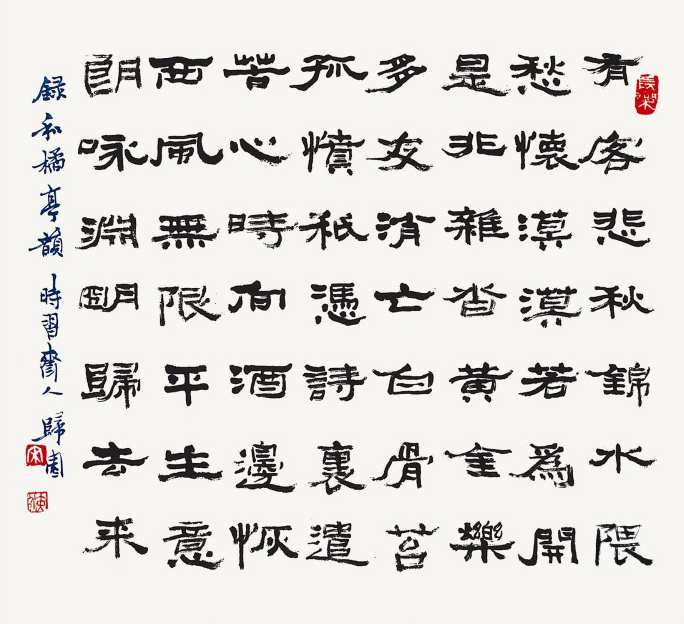 有客悲秋錦水隈
愁懷漠漠若爲開
是非雜沓黃金爍
多友消亡白骨苔
孤憤秪憑詩裏遣
苦心時向酒邊恢
西風無限平生意
朗咏淵明歸去来
録和橘亭韻 時習齋人 歸園